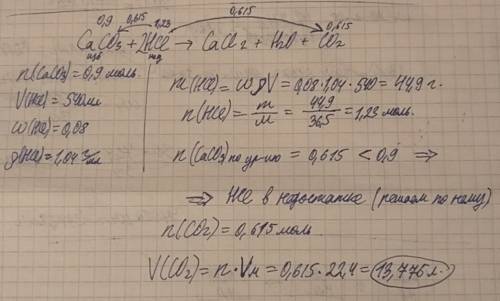 0,9 0,615 1,23 0,615 0,615
CaCO3 + 2HCl → CaCl2 + H2O + CO2
изб нед
n(CaCO3) = 0,9 моль.
V(HCl) = 540мл
w(HCl) = 0,08
ρ(HCl) = 1,04 г/мл
m(HCl) = wρV = 0,08·1,04·540 = 44,9 г.
n(HCl) = m/M = 44,9/36,5 = 1,23 моль.
n(CaCO3) по ур-ию = 0,615 < 0,9 ⇒
⇒ HCl в недостатке (решаем по нему)
n(CO2) = 0,615 моль.
V(CO2) = n·Vм = 0,615·22,4 = 13,776 л.